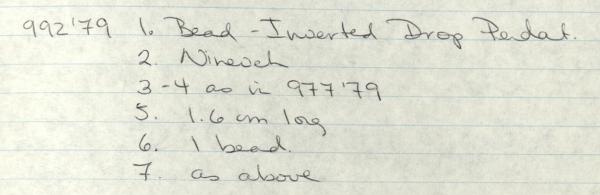 992'79 1. Bead - Inverted Drop Pendat.
2. Nineveh
3-4 as in 977'79
5. 1.6 cm long
6. 1 bead.
7. as above